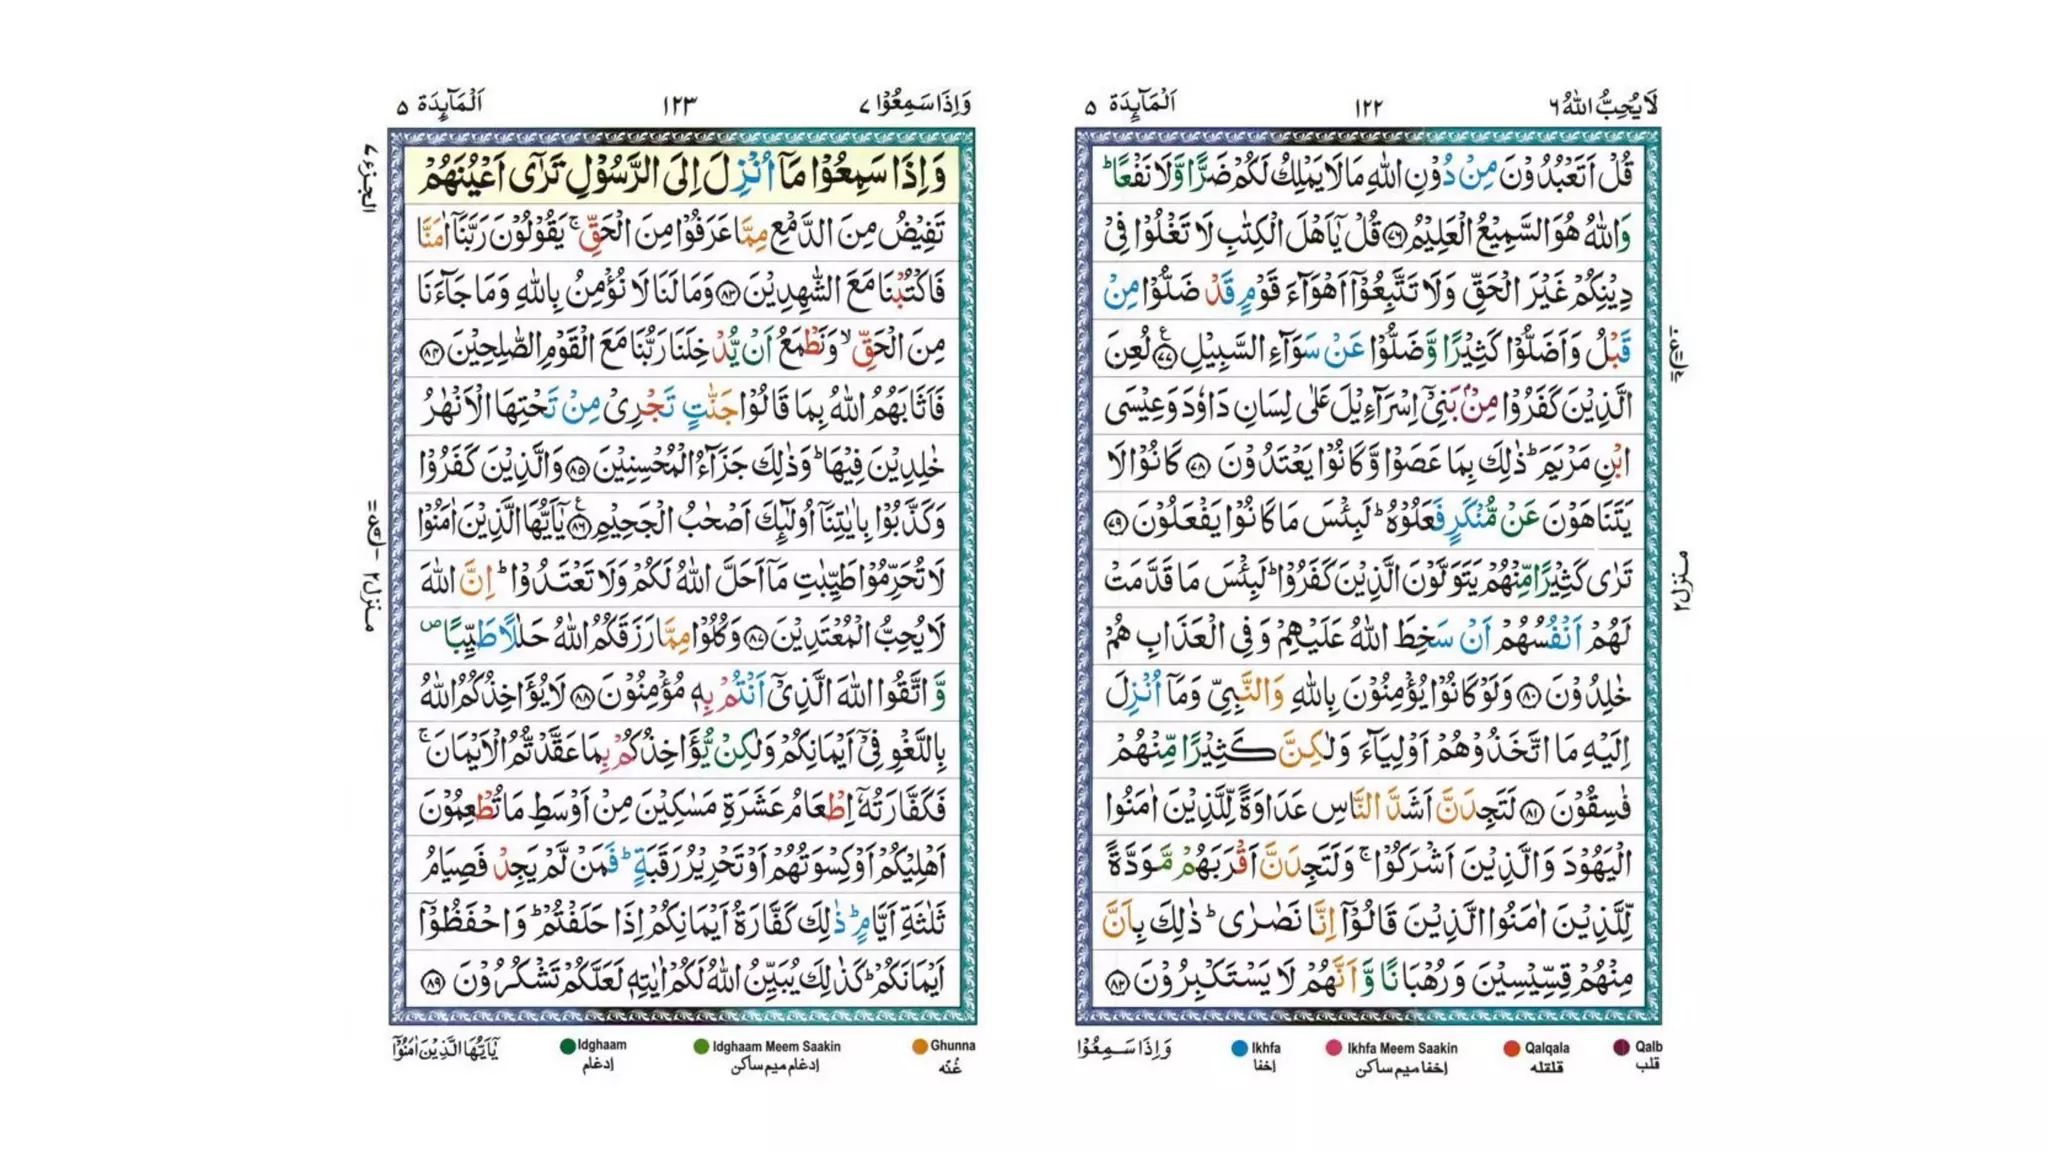 لَا يُحِبُّ اللّٰهُ ٦
١٢٢
اَلْمَآئِدَة ٥
قُلْ اَتَعْبُدُوْنَ مِنْ دُوْنِ اللّٰهِ مَا لَا يَمْلِكُ لَكُمْ ضَرًّا وَّلَا نَفْعًا ؕ
وَاللّٰهُ هُوَ السَّمِيْعُ الْعَلِيْمُ ﴿٧٦﴾ قُلْ يٰۤاَهْلَ الْكِتٰبِ لَا تَغْلُوْا فِيْ
دِيْنِكُمْ غَيْرَ الْحَقِّ وَلَا تَتَّبِعُوْۤا اَهْوَآءَ قَوْمٍ قَدْ ضَلُّوْا مِنْ
قَبْلُ وَاَضَلُّوْا كَثِيْرًا وَّضَلُّوْا عَنْ سَوَآءِ السَّبِيْلِ ﴿٧٧﴾ لُعِنَ
الَّذِيْنَ كَفَرُوْا مِنْۢ بَنِيْۤ اِسْرَآءِيْلَ عَلٰى لِسَانِ دَاوٗدَ وَعِيْسَى
ابْنِ مَرْيَمَ ؕ ذٰلِكَ بِمَا عَصَوْا وَّكَانُوْا يَعْتَدُوْنَ ﴿٧٨﴾ كَانُوْا لَا
يَتَنَاهَوْنَ عَنْ مُّنْكَرٍ فَعَلُوْهُ ؕ لَبِئْسَ مَا كَانُوْا يَفْعَلُوْنَ ﴿٧٩﴾
تَرٰى كَثِيْرًا مِّنْهُمْ يَتَوَلَّوْنَ الَّذِيْنَ كَفَرُوْا ؕ لَبِئْسَ مَا قَدَّمَتْ
لَهُمْ اَنْفُسُهُمْ اَنْ سَخِطَ اللّٰهُ عَلَيْهِمْ وَفِي الْعَذَابِ هُمْ
خٰلِدُوْنَ ﴿٨٠﴾ وَلَوْ كَانُوْا يُؤْمِنُوْنَ بِاللّٰهِ وَالنَّبِيِّ وَمَاۤ اُنْزِلَ
اِلَيْهِ مَا اتَّخَذُوْهُمْ اَوْلِيَآءَ وَلٰكِنَّ كَثِيْرًا مِّنْهُمْ
فٰسِقُوْنَ ﴿٨١﴾ لَتَجِدَنَّ اَشَدَّ النَّاسِ عَدَاوَةً لِّلَّذِيْنَ اٰمَنُوا
الْيَهُوْدَ وَالَّذِيْنَ اَشْرَكُوْا ۚ وَلَتَجِدَنَّ اَقْرَبَهُمْ مَّوَدَّةً
لِّلَّذِيْنَ اٰمَنُوا الَّذِيْنَ قَالُوْۤا اِنَّا نَصٰرٰى ؕ ذٰلِكَ بِاَنَّ
مِنْهُمْ قِسِّيْسِيْنَ وَرُهْبَانًا وَّاَنَّهُمْ لَا يَسْتَكْبِرُوْنَ ﴿٨٢﴾
منزل ٢
Qalb
قلب
Qalqala
قلقله
Ikhfa Meem Saakin
اخفا میم ساکن
Ikhfa
اخفا
وَاِذَا سَمِعُوْا
وَاِذَا سَمِعُوْا ٧
١٢٣
اَلْمَآئِدَة ٥
وَاِذَا سَمِعُوْا مَاۤ اُنْزِلَ اِلَى الرَّسُوْلِ تَرٰۤى اَعْيُنَهُمْ
تَفِيْضُ مِنَ الدَّمْعِ مِمَّا عَرَفُوْا مِنَ الْحَقِّ ۚ يَقُوْلُوْنَ رَبَّنَاۤ اٰمَنَّا
فَاكْتُبْنَا مَعَ الشّٰهِدِيْنَ ﴿٨٣﴾ وَمَا لَنَا لَا نُؤْمِنُ بِاللّٰهِ وَمَا جَآءَنَا
مِنَ الْحَقِّ ۙ وَنَطْمَعُ اَنْ يُّدْخِلَنَا رَبُّنَا مَعَ الْقَوْمِ الصّٰلِحِيْنَ ﴿٨٤﴾
فَاَثَابَهُمُ اللّٰهُ بِمَا قَالُوْا جَنّٰتٍ تَجْرِيْ مِنْ تَحْتِهَا الْاَنْهٰرُ
خٰلِدِيْنَ فِيْهَا ؕ وَذٰلِكَ جَزَآءُ الْمُحْسِنِيْنَ ﴿٨٥﴾ وَالَّذِيْنَ كَفَرُوْا
وَكَذَّبُوْا بِاٰيٰتِنَاۤ اُولٰٓئِكَ اَصْحٰبُ الْجَحِيْمِ ﴿٨٦﴾ يٰۤاَيُّهَا الَّذِيْنَ اٰمَنُوْا
لَا تُحَرِّمُوْا طَيِّبٰتِ مَاۤ اَحَلَّ اللّٰهُ لَكُمْ وَلَا تَعْتَدُوْا ؕ اِنَّ اللّٰهَ
لَا يُحِبُّ الْمُعْتَدِيْنَ ﴿٨٧﴾ وَكُلُوْا مِمَّا رَزَقَكُمُ اللّٰهُ حَلٰلًا طَيِّبًا ۪
وَّاتَّقُوا اللّٰهَ الَّذِيْۤ اَنْتُمْ بِهٖ مُؤْمِنُوْنَ ﴿٨٨﴾ لَا يُؤَاخِذُكُمُ اللّٰهُ
بِاللَّغْوِ فِيْۤ اَيْمَانِكُمْ وَلٰكِنْ يُّؤَاخِذُكُمْ بِمَا عَقَّدْتُّمُ الْاَيْمَانَ ۚ
فَكَفَّارَتُهٗۤ اِطْعَامُ عَشَرَةِ مَسٰكِيْنَ مِنْ اَوْسَطِ مَا تُطْعِمُوْنَ
اَهْلِيْكُمْ اَوْ كِسْوَتُهُمْ اَوْ تَحْرِيْرُ رَقَبَةٍ ؕ فَمَنْ لَّمْ يَجِدْ فَصِيَامُ
ثَلٰثَةِ اَيَّامٍ ؕ ذٰلِكَ كَفَّارَةُ اَيْمَانِكُمْ اِذَا حَلَفْتُمْ ؕ وَاحْفَظُوْۤا
اَيْمَانَكُمْ ؕ كَذٰلِكَ يُبَيِّنُ اللّٰهُ لَكُمْ اٰيٰتِهٖ لَعَلَّكُمْ تَشْكُرُوْنَ ﴿٨٩﴾
الجزء ٧
منزل ٢
Ghunna
غُنّه
Idghaam Meem Saakin
ادغام میم ساکن
Idghaam
ادغام
يٰۤاَيُّهَا الَّذِيْنَ اٰمَنُوْا